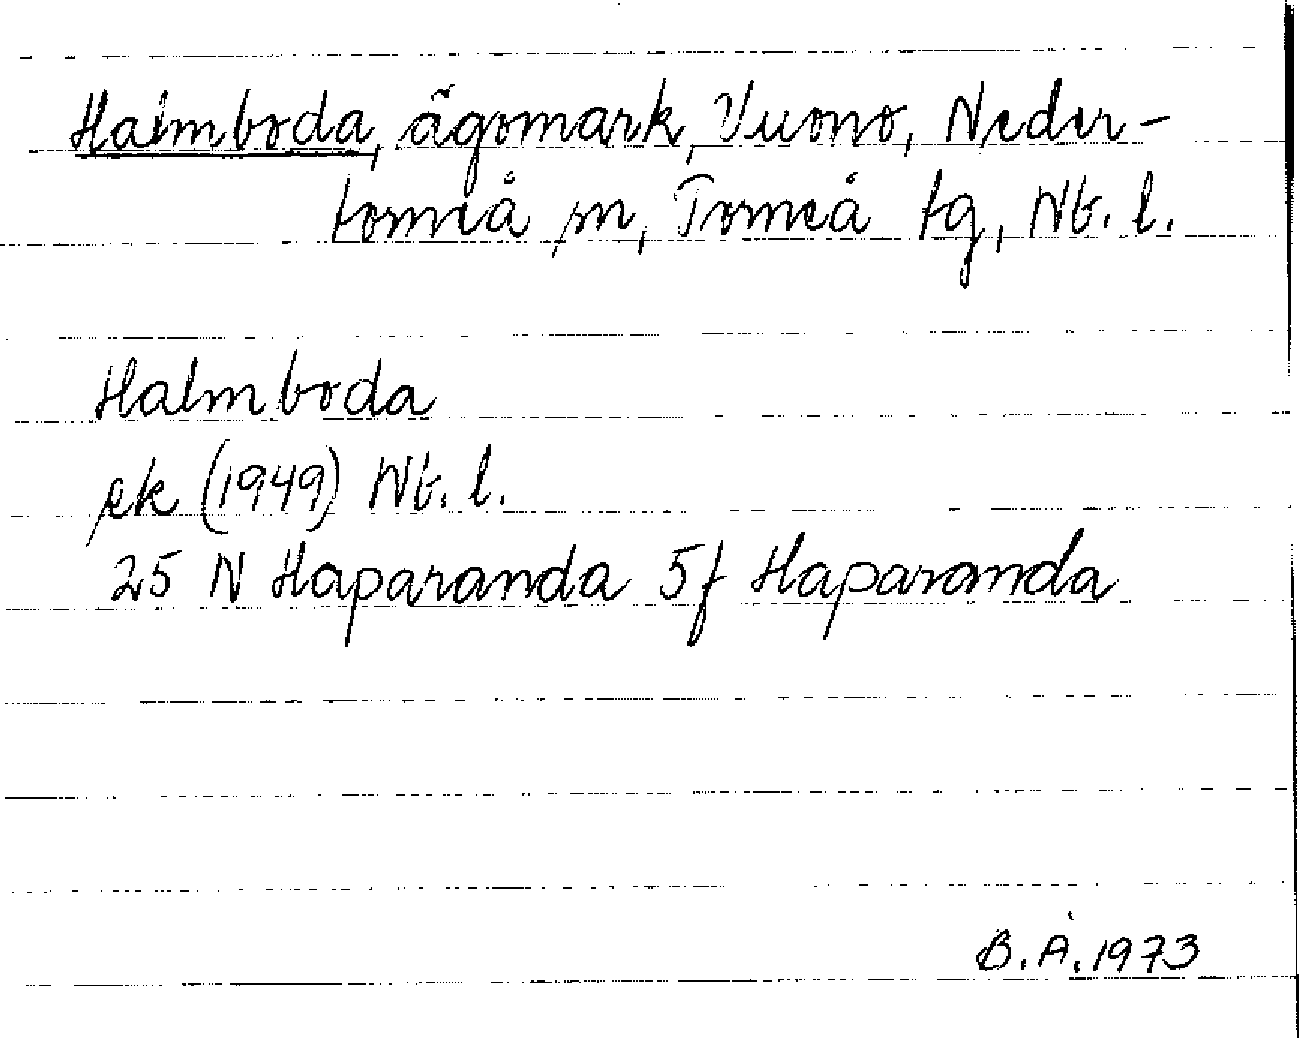 Halmboda, ägomark, Vuono, Neder-
torneå sn, Torneå tg, Nb. l.
Halmboda
ek (1949) Nb. l.
25 N Haparanda 5f Haparanda
B.Å. 1973